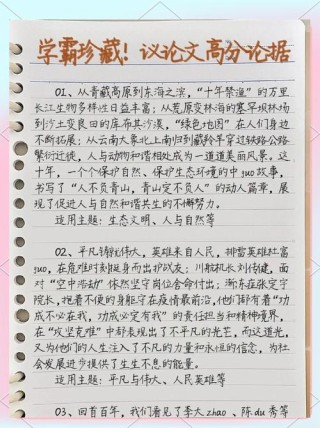 学霸珍藏！议论文高分论据
01、从青藏高原到东海之滨，“十年禁渔”的万里
长江生物多样性日益丰富；从荒原变林海的塞罕坝林场
到沙土变良田的库布其沙漠，“绿色地图”在人们身边
不断拓展；从云南大象北上南归到藏羚羊穿过铁路公路
繁衍迁徙，人与动物和谐相处成为一道道美丽风景。这
十年，一个个保护自然、保护生态环境的中guo故事，
书写了“人不负青山，青山定不负人”的动人篇章，展
现了促进人与自然和谐共生的不懈努力。
适用主题：生态文明、人与自然等
02、平凡铸就伟大，英雄来自人民，排雷英雄杜富
guo，在危难时刻挺身而出护战友；川航机长刘传健，面
对“空中浩劫”依然坚守岗位舍命付出；渐冻在张定宇
院长，拖着不便的身躯守在疫情最前沿，他们都有着“功
成不必在我，功成必定有我”的责任担当和精神境界，
在“攻坚克难”中都表现出了不平凡的光芒，而这道光，
又为他们的人生注入了不凡的力量和永恒的信念，为社
会发展进步提供了生生不息的能量。
适用主题：平凡与伟大、人民英雄等
03、回首百年，我们看见了李大zhao、陈du秀等